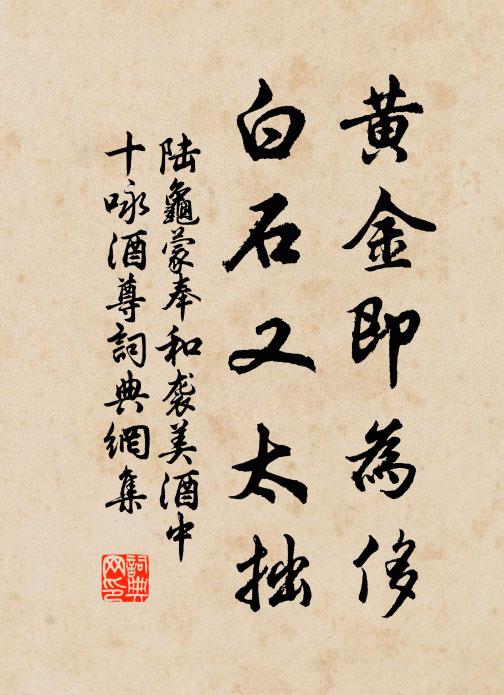 黃金即為侈
白石又太拙
陸龜蒙奉和袭美酒中
十咏酒尊詞典網集
詞典网印